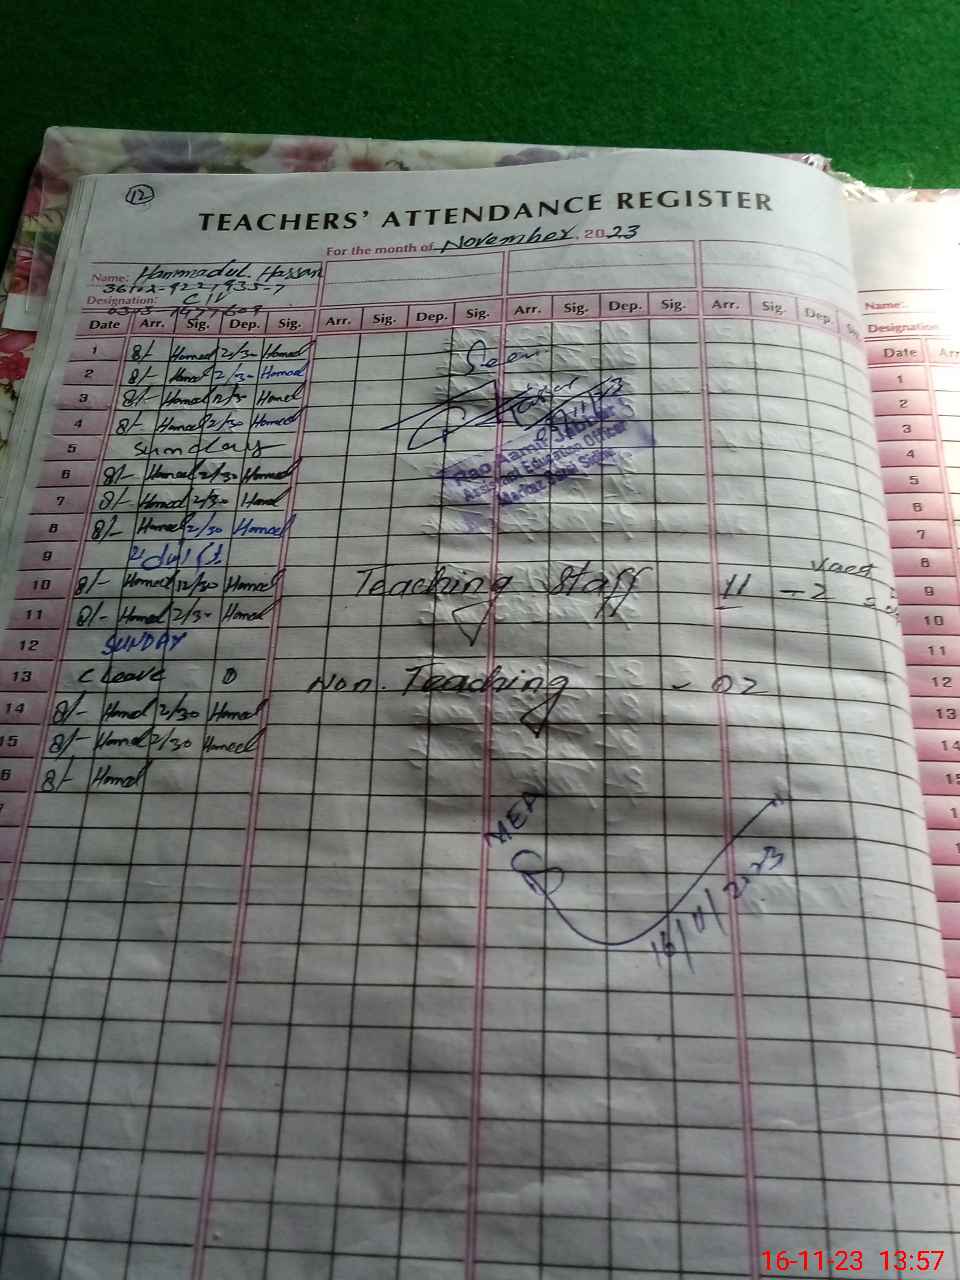 12
TEACHERS' ATTENDANCE REGISTER
For the month of November, 2023
Name: Hammadul Hassan
Designation: C/V
Date Arr. Sig. Dep. Sig. Arr. Sig. Dep. Sig. Arr. Sig. Dep. Sig. Arr. Sig. Dep. Sig.
1 8/- Hamad 2/30 Hamad
Seen
2 8/- Hamad 2/30 Hamad
3 8/- Hamad 2/30 Hamad
4 8/- Hamad 2/30 Hamad
5 Sunday
Assistant Education Officer
6 8/- Hamad 2/30 Hamad
7 8/- Hamad 2/30 Hamad
8 8/- Hamad 2/30 Hamad
9
10 8/- Hamad 12/30 Hamad
Teaching Staff 11 - 2
11 8/- Hamad 2/30 Hamad
12 SUNDAY
13 C Leave
Non. Teaching - 02
14 8/- Hamad 2/30 Hamad
15 8/- Hamad 2/30 Hamad
6 8/- Hamad
MEA
16/11/2023
Name:
Designation
Date Arr
1
2
3
4
5
6
7
8
9
10
11
12
13
14
16-11-23 13:57